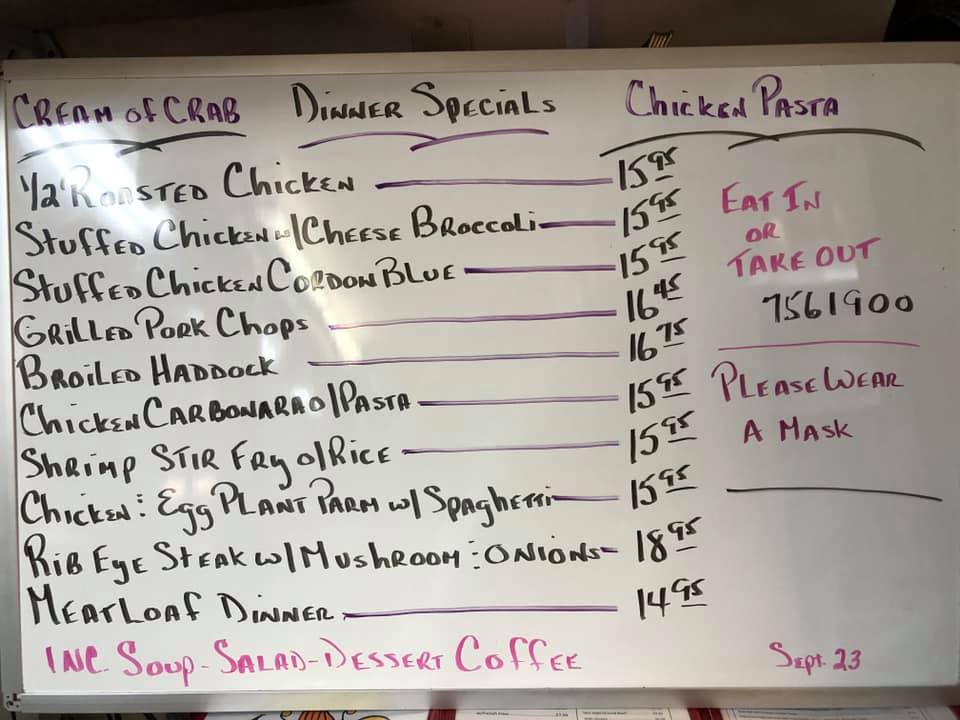 CREAM of CRAB DINNER SPECIALS Chicken PASTA
1/2 ROASTED Chicken 15.95
Stuffed Chicken w/ CHEESE BROCCOLI 15.95
Stuffed Chicken CORDON BLUE 15.95
GRILLED PORK Chops 16.45
BROILED HADDOCK 16.75
Chicken CARBONARA O/PASTA 15.95
Shrimp STIR FRY O/RICE 15.95
Chicken : Egg PLANT PARM w/ Spaghetti 15.95
RIB EYE STEAK w/ MUSHROOM : ONIONS 18.95
MEATLOAF DINNER 14.95
INC. Soup - SALAD - DESSERT COFFEE
EAT IN
OR
TAKE OUT
7561900
PLEASE WEAR
A MASK
Sept. 23